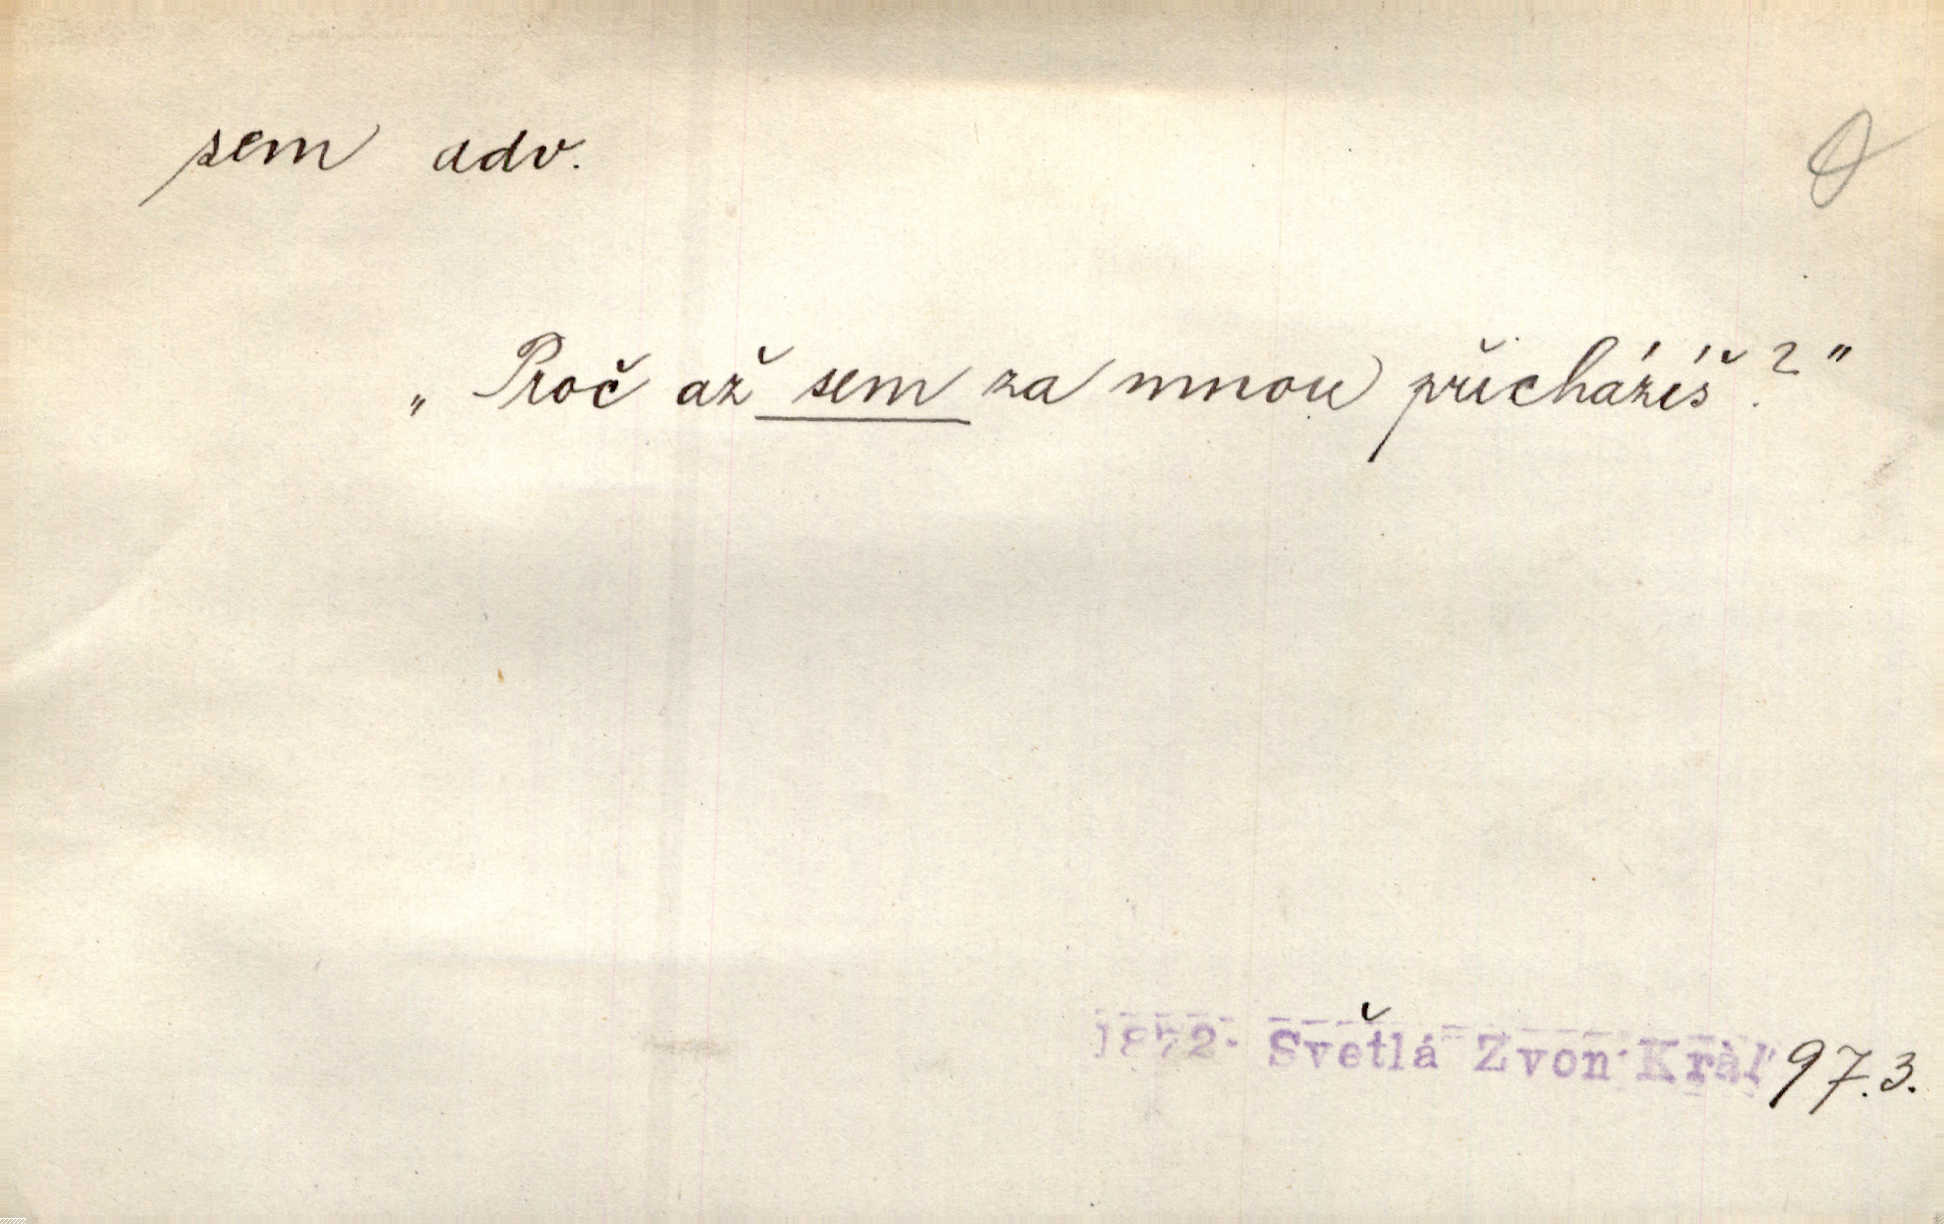 sem adv.
„Proč až sem za mnou přicházíš?"
1872· Světlá Zvon·Král' 97.3.